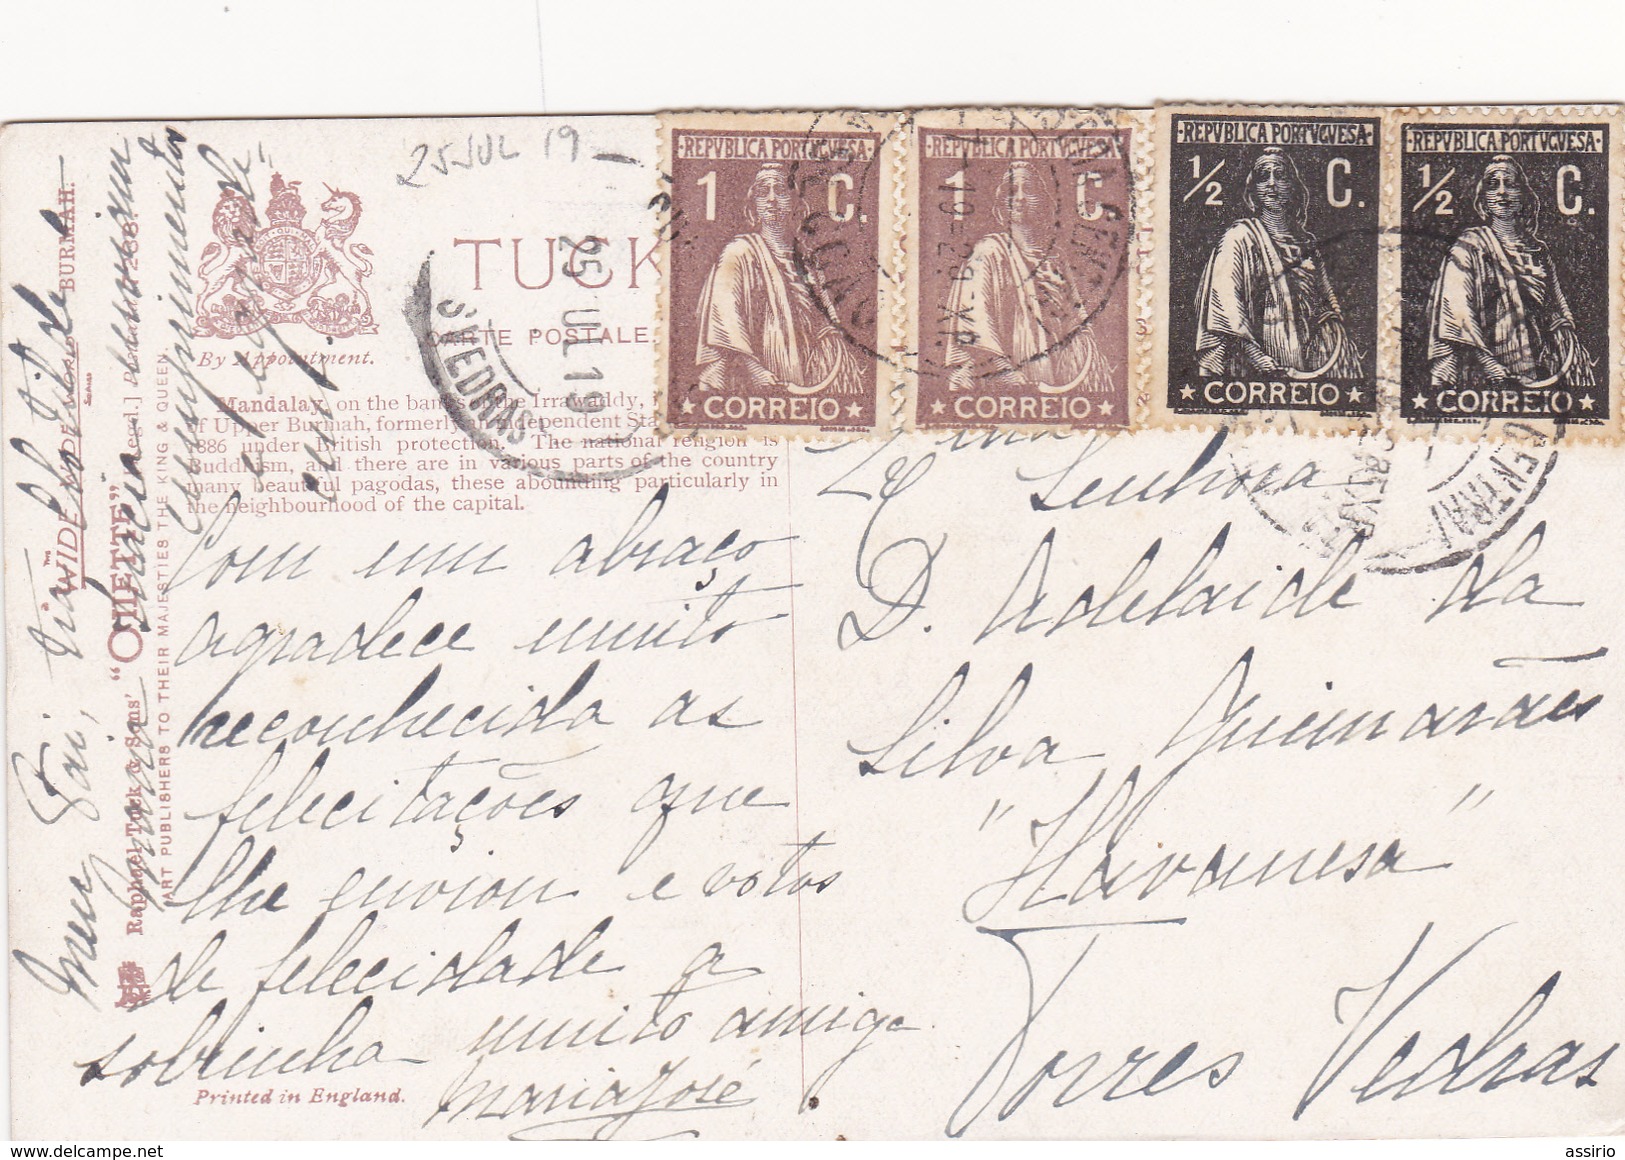 25 JUL 19
REPVBLICA PORTVGVESA
1 C.
CORREIO
REPVBLICA PORTVGVESA
1 C.
CORREIO
REPVBLICA PORTVGVESA
1/2 C.
CORREIO
REPVBLICA PORTVGVESA
1/2 C.
CORREIO
TUCK
CARTE POSTALE.
By Appointment.
25 JUL 19
VEDRAS
CENTRAL
Mandalay, on the banks of the Irrawaddy,
of Upper Burmah, formerly an independent
1886 under British protection. The national religion is
Buddhism, and there are in various parts of the country
many beautiful pagodas, these abounding particularly in
the neighbourhood of the capital.
Com um abraço
agradece muito
reconhecida as
felicitações que
lhe enviou e votos
de felecidade a
sobrinha muito amiga
Maria José
Printed in England.
Meu Pai, tia Clotilde
cumprimentos
BURMAH.
"WIDE WIDE WORLD"
Raphael Tuck & Sons' "OILETTE" [Regd.]
ART PUBLISHERS TO THEIR MAJESTIES THE KING & QUEEN.
Senhora
D. Adelaide da
Silva Guimarães
"Havanesa"
Torres Vedras
assirio